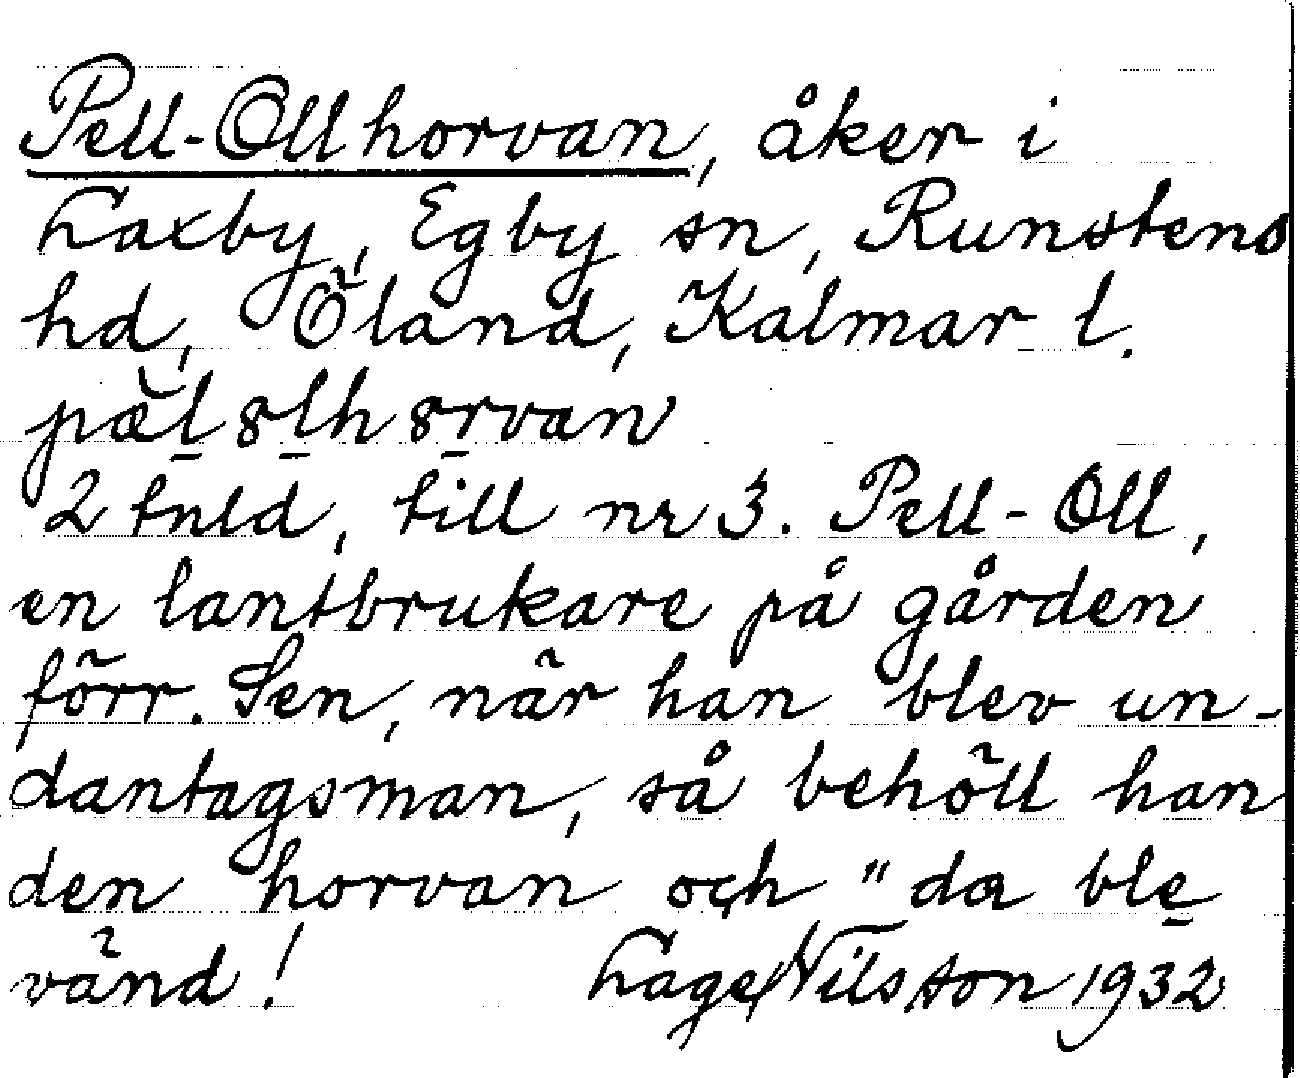 Pell-Ollhorvan, åker i
Laxby, Egby sn, Runstens
hd, Öland, Kalmar l.
pæ̆l̲8l̲h8r̲van
2 tnld, till nr 3. Pell-Oll,
en lantbrukare på gården
förr. Sen, när han blev un-
dantagsman, så behöll han
den horvan och "da ble̲
vänd! Lage Nilsson 1932